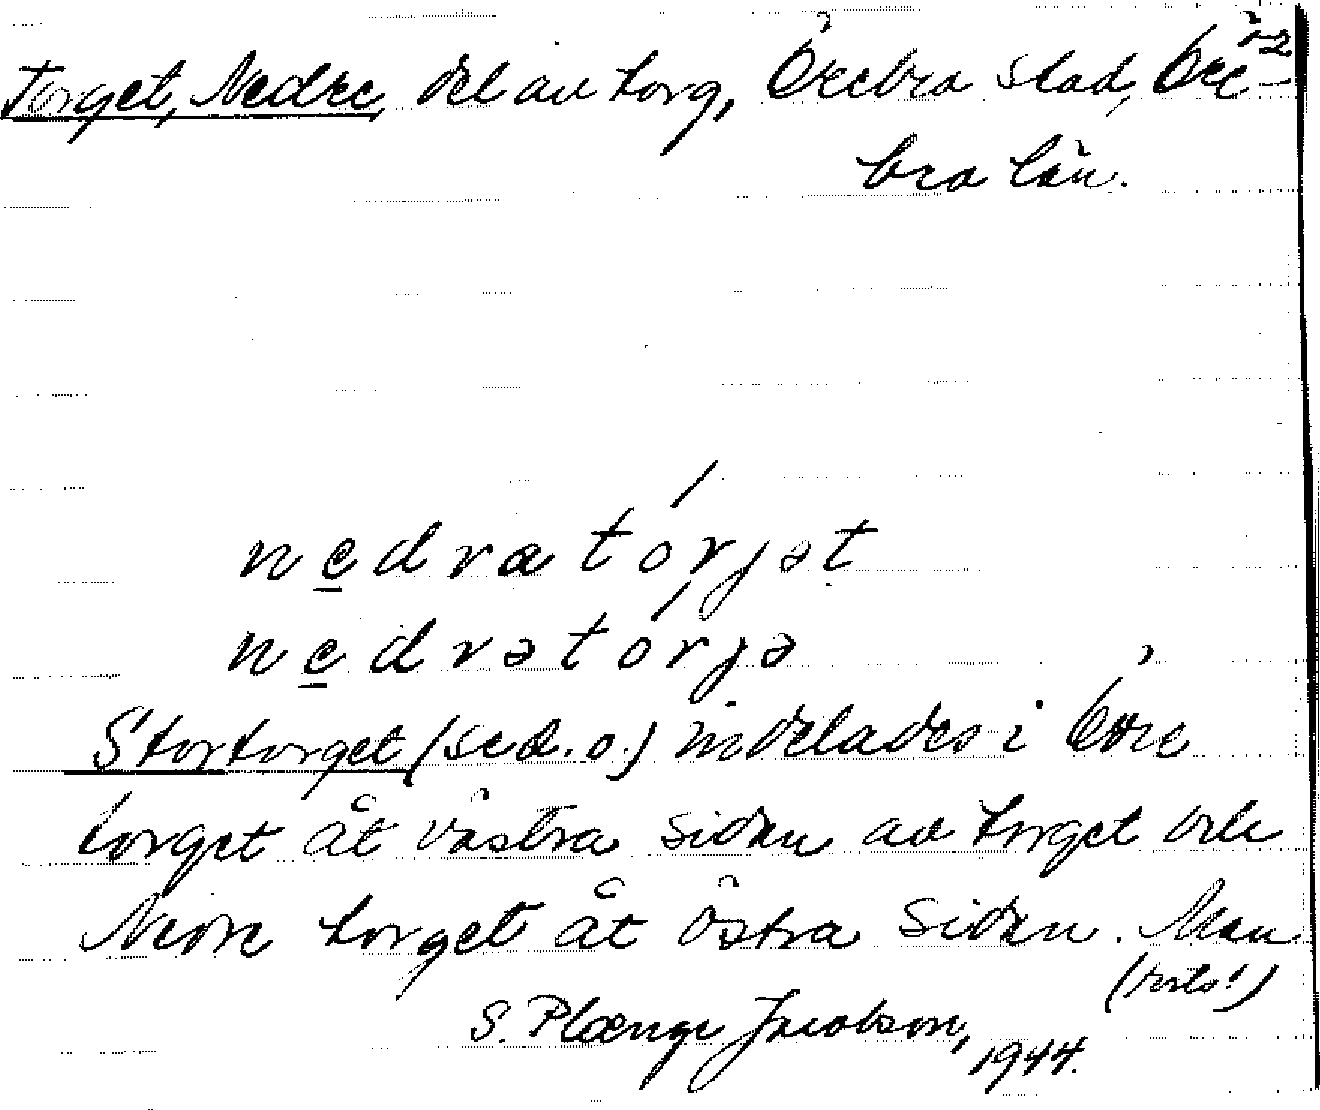 Torget, Nedre, del av torg, Örebro stad, Öre-
bro län.
nedrətórjət
nedrətórjə
Stortorget (se d. o.) indelades i Övre
torget åt västra sidan av torget och
Nedre torget åt östra sidan. Man
(forts!)
S. Plænge Jacobson,
1944.